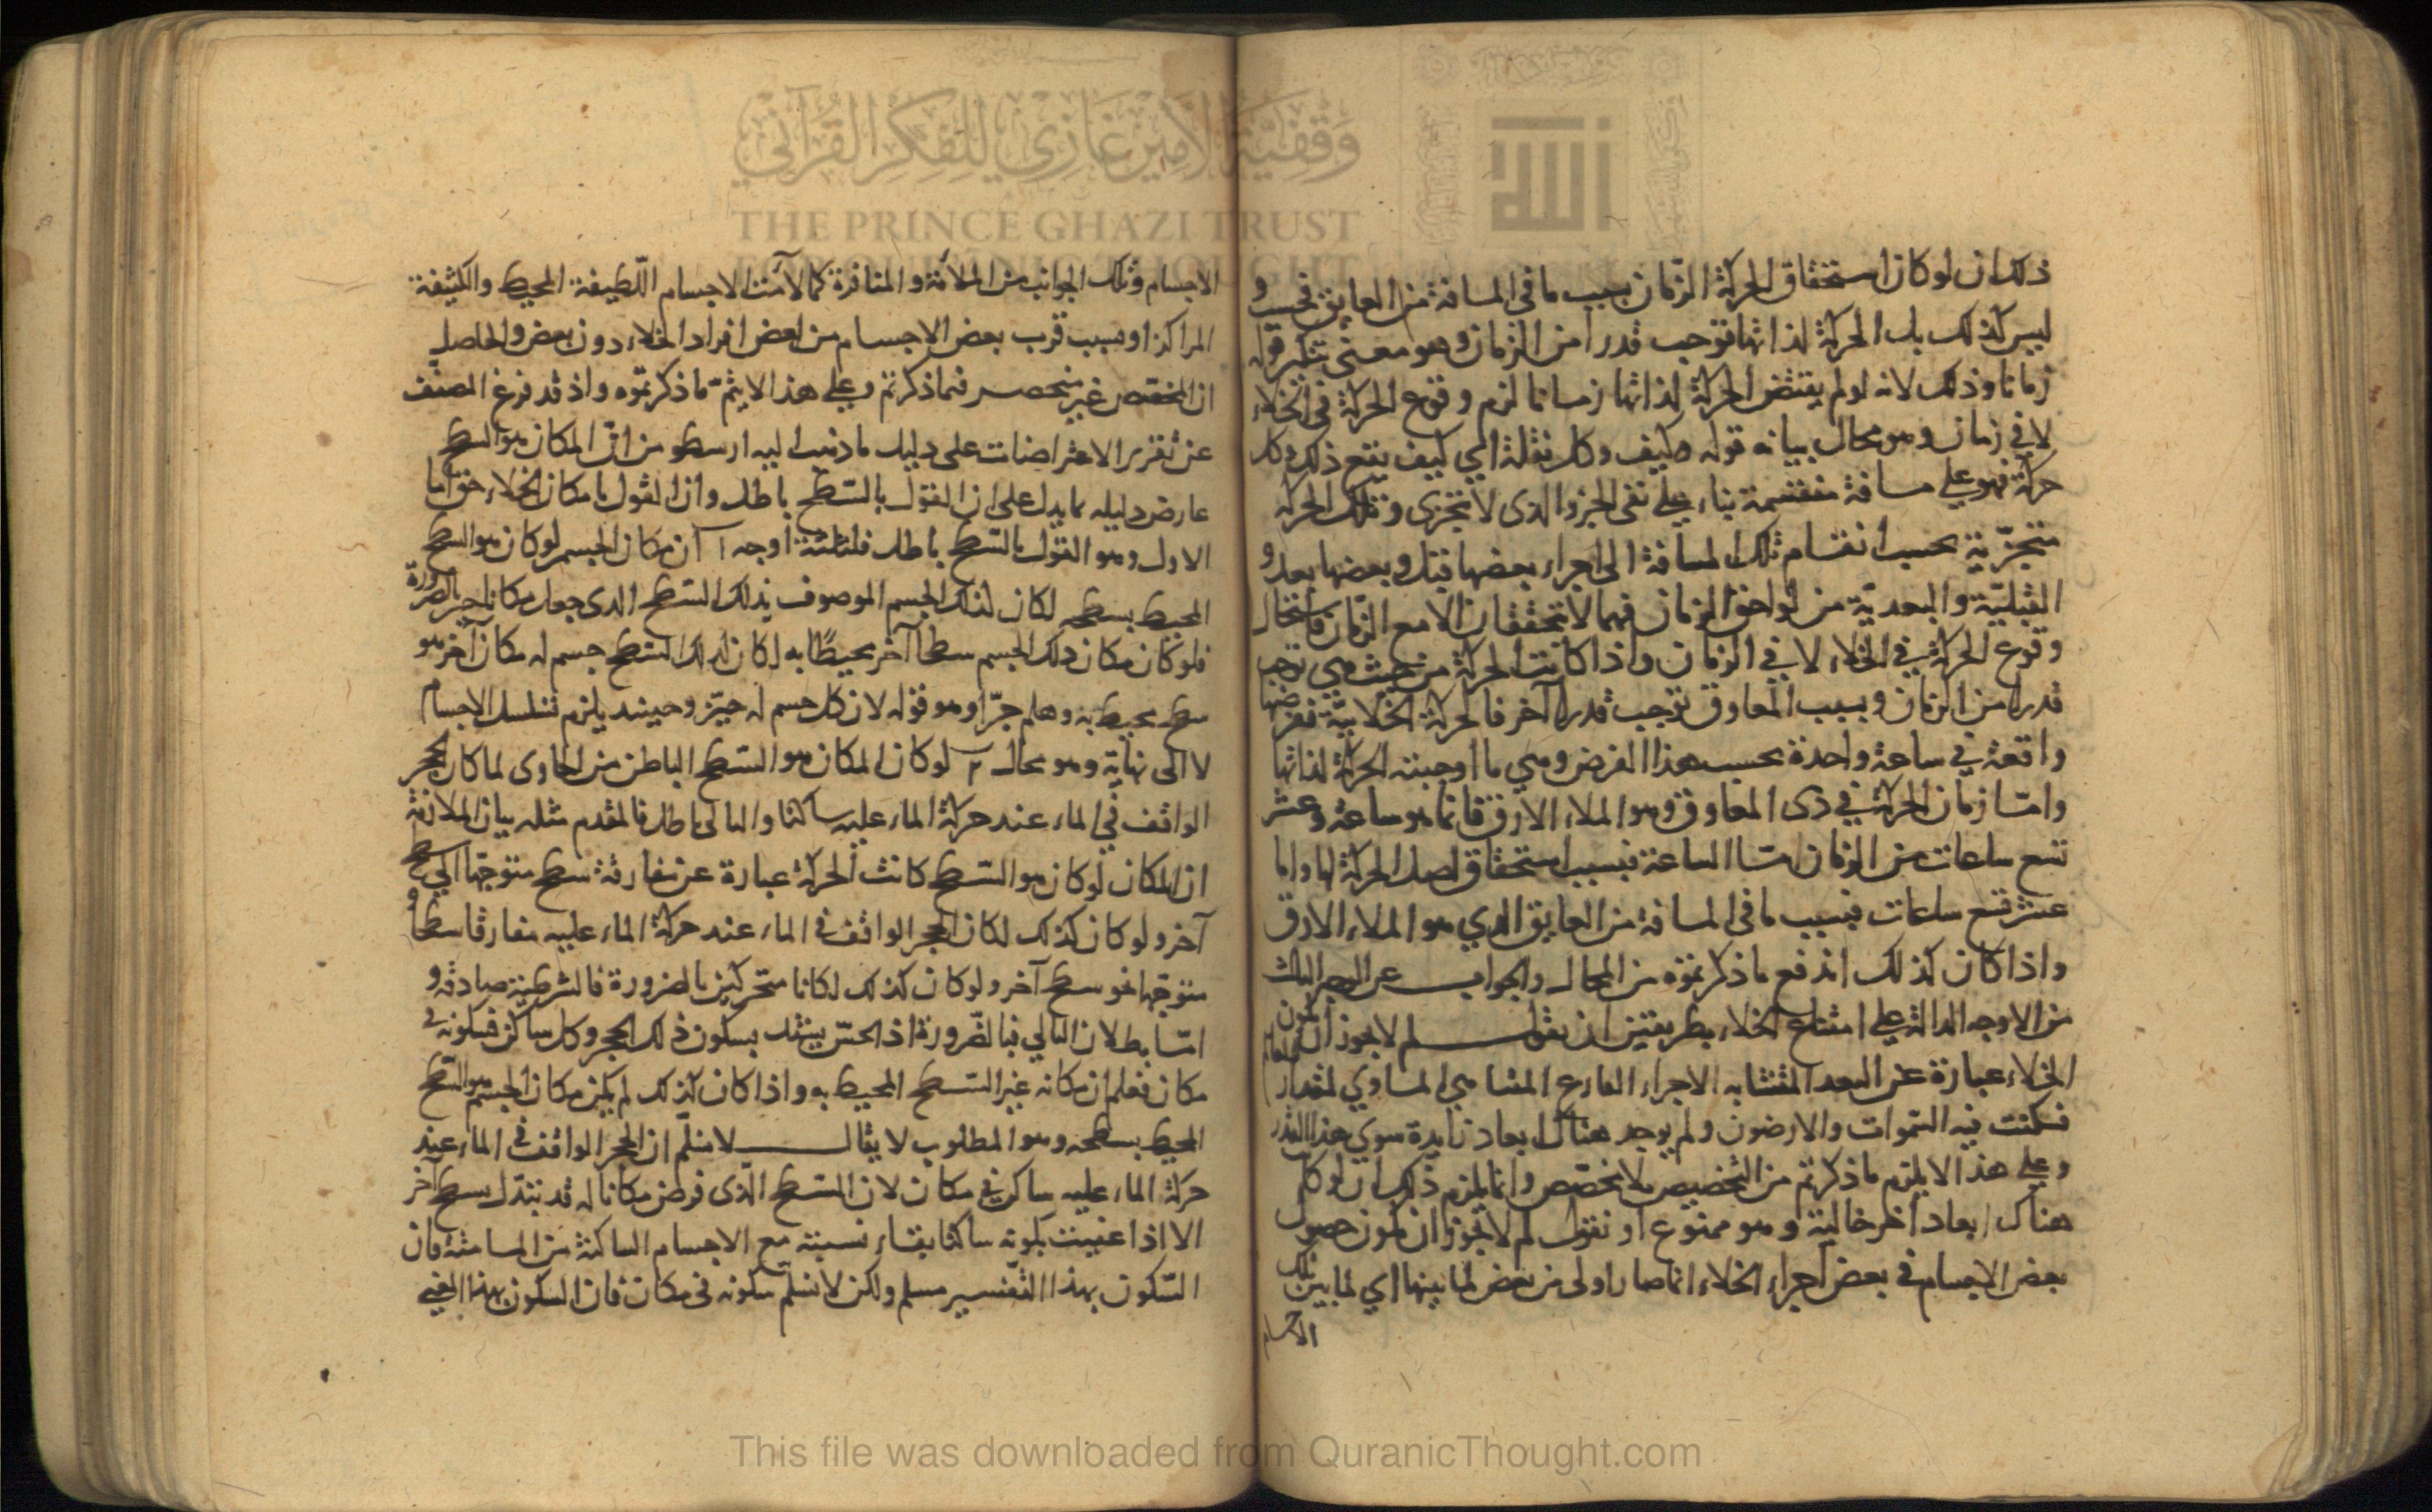 وقفية الأمير غازي للفكر القرآني
THE PRINCE GHAZI TRUST
FOR QUR'ANIC THOUGHT
ذلك ان لو كان استحقاق الحركة الزمان بحسب ما في المسافة من العايق فحسب و
ليس كذلك بل الحركة لذاتها توجب قدرا من الزمان وهو معنى قوله
زمانا وذلك لانه لو لم يقتض الحركة لذاتها زمانا لزم وقوع الحركة في الخلاء
لا في زمان وهو محال بيانه قوله وكيف وكل نقلة اي كيف يقع ذلك وكل
حركة فهو على مسافة منقسمة بناء على نفى الجزو الذى لا يتجزى وتلك الحركة
متجزّية بحسب انقسام تلك المسافة الى اجزاء بعضها قبل وبعضها بعد و
القبليّة والبعديّة من لواحق الزمان فهما لا تتحققان الا مع الزمان فاستحال
وقوع الحركة في الخلاء لا في الزمان واذا كانت الحركة من حيث هي توجب
قدرا من الزمان وبسبب المعاوق توجب قدرا آخر فالحركة الخلائيّة نفرضها
واقعة في ساعة واحدة بحسب هذا الفرض وهي ما اوجبته الحركة لذاتها
وامّا زمان الحركة في ذى المعاوق وهو الملاء الارق فانما هو ساعة وعشر
تسع ساعات من الزمان امّا الساعة فبسبب استحقاق اصل الحركة لها واما
عشر تسع ساعات فبسبب ما في المسافة من العايق الذي هو الملاء الارق
واذا كان كذلك اندفع ما ذكرتموه من المحال والجواب عن الوجه الثالث
من الاوجه الدالة على امتناع الخلاء بطريقتين ان نقول لم لا يجوز ان يكون
الخلاء عبارة عن البعد المتشابه الاجزاء الفارغ المتناهي المساوي لمقدار
فسكنت فيه السّموات والارضون ولم يوجد هناك ابعاد زايدة سوى هذا القدر
وعلى هذا لا يلزم ما ذكرتم من التخصيص بلا مخصّص وانما يلزم ذلك ان لو كان
هناك ابعاد اخر خالية وهو ممنوع او نقول لم لا يجوز ان يكون حصول
بعض الاجسام في بعض اجزاء الخلاء انما صار اولى من بعض لما بينها اي لما بين تلك
الاجسام
الاجسام وتلك الجوانب من الملاءمة والمنافرة كما لاءمت الاجسام اللّطيفة المحيط والكثيفة
المراكز او بسبب قرب بعض الاجسام من بعض افراد الخلاء دون بعض والحاصل
ان المخصّص غير منحصر فيما ذكرتم وعلى هذا لا يتمّ ما ذكرتموه واذ قد فرغ المصنّف
عن تقرير الاعتراضات على دليل ما ذهب اليه ارسطو من انّ المكان هو السطح
عارض دليله بما يدل على ان القول بالسّطح باطل وان القول بامكان الخلاء حق اما
الاول وهو القول بالسّطح باطل فلثلثة اوجه ١ ان مكان الجسم لو كان هو السطح
المحيط بسطحه لكان لذلك الجسم الموصوف بذلك السّطح الذى جعل مكانا حيز بالضرورة
فلو كان مكان ذلك الجسم سطحا آخر محيطًا به لكان لذلك السّطح جسم له مكان آخر هو
سطح محيط به وهلم جرّا وهو قوله لان كل جسم له حيّز وحينئذ يلزم تسلسل الاجسام
لا الى نهاية وهو محال ٢ لو كان المكان هو السّطح الباطن من الحاوى لما كان الحجر
الواقف في الماء عند حركة الماء عليه ساكنا والتالى باطل فالمقدم مثله بيان الملازمة
ان المكان لو كان هو السّطح كانت الحركة عبارة عن مفارقة سطح متوجّها الى سطح
آخر ولو كان كذلك لكان الحجر الواقف في الماء عند حركة الماء عليه مفارقا سطحا و
متوجّها نحو سطح آخر ولو كان كذلك لكانا متحركين بالضرورة فالشرطيّة صادقة و
امّا بطلان التالي فبالضّرورة اذ الحسّ يشهد بسكون ذلك الحجر وكل ساكن فسكونه في
مكان فعلم ان مكانه غير السّطح المحيط به واذا كان كذلك لم يكن مكان الجسم هو السّطح
المحيط بسطحه وهو المطلوب لا يقال لا نسلّم ان الحجر الواقف في الماء عند
حركة الماء عليه ساكن في مكان لان السّطح الّذى فرض مكانا له قد تبدّل بسطح آخر
الا اذا عنيت بكونه ساكنا بقاء نسبته مع الاجسام الساكنة من المسامتة فان
السّكون بهذا التّفسير مسلم ولكن لا نسلّم سكونه في مكان فان السكون بهذا المعنى
This file was downloaded from QuranicThought.com